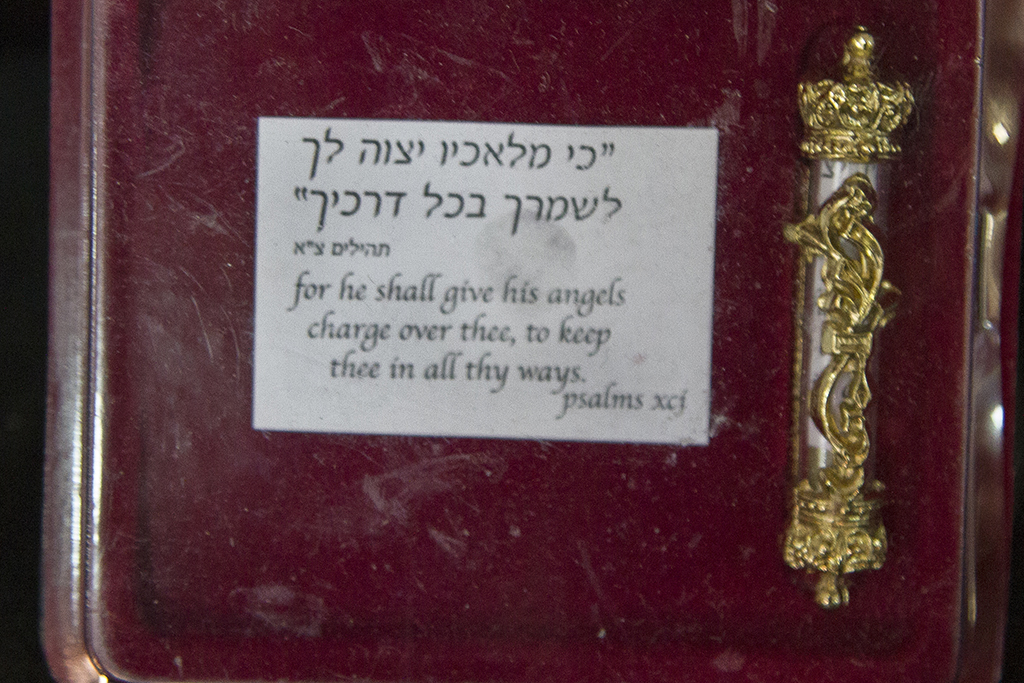 "כי מלאכיו יצוה לך
לשמרך בכל דרכיך"
תהילים צ"א
for he shall give his angels
charge over thee, to keep
thee in all thy ways.
psalms xcj